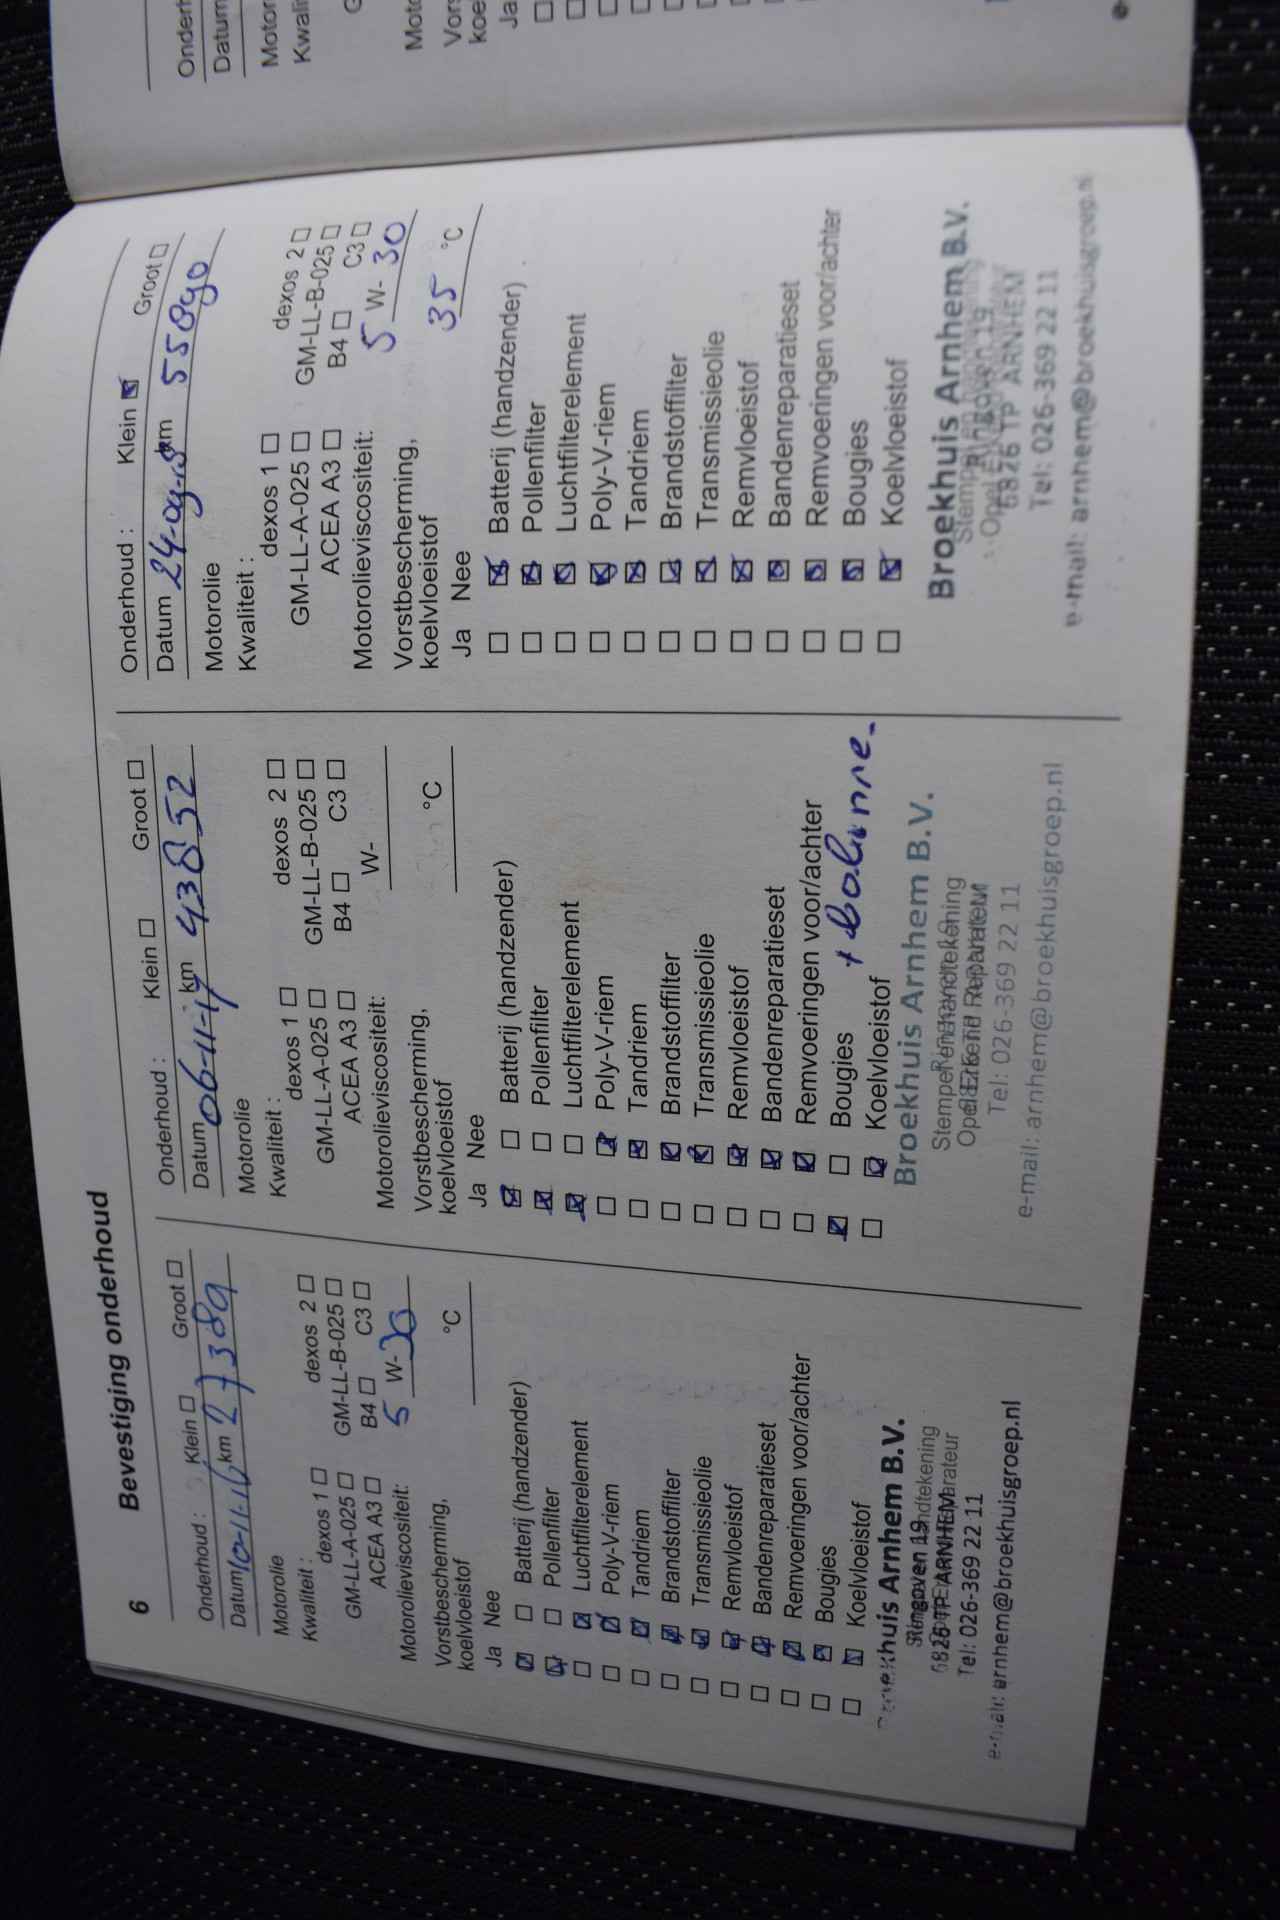 6 Bevestiging onderhoud
Onderhoud : Klein ☐ Groot ☐
Datum 10-11-16 km 27389
Motorolie
Kwaliteit :
dexos 1 ☐ dexos 2 ☐
GM-LL-A-025 ☐ GM-LL-B-025 ☐
ACEA A3 ☐ B4 ☐ C3 ☐
Motorolieviscositeit: 5 W-30
Vorstbescherming,
koelvloeistof °C
Ja Nee
☒ ☐ Batterij (handzender)
☒ ☐ Pollenfilter
☐ ☒ Luchtfilterelement
☐ ☒ Poly-V-riem
☐ ☒ Tandriem
☐ ☒ Brandstoffilter
☐ ☒ Transmissieolie
☐ ☒ Remvloeistof
☐ ☒ Bandenreparatieset
☐ ☒ Remvoeringen voor/achter
☐ ☒ Bougies
☐ ☒ Koelvloeistof
Broekhuis Arnhem B.V.
6826 TP ARNHEM
Tel: 026-369 22 11
e-mail: arnhem@broekhuisgroep.nl
Onderhoud : Klein ☐ Groot ☐
Datum 06-11-17 km 43852
Motorolie
Kwaliteit :
dexos 1 ☐ dexos 2 ☐
GM-LL-A-025 ☐ GM-LL-B-025 ☐
ACEA A3 ☐ B4 ☐ C3 ☐
Motorolieviscositeit: W-
Vorstbescherming,
koelvloeistof °C
Ja Nee
☒ ☐ Batterij (handzender)
☒ ☐ Pollenfilter
☒ ☐ Luchtfilterelement
☐ ☒ Poly-V-riem
☐ ☒ Tandriem
☐ ☒ Brandstoffilter
☐ ☒ Transmissieolie
☐ ☒ Remvloeistof
☐ ☒ Bandenreparatieset
☐ ☒ Remvoeringen voor/achter
☒ ☐ Bougies +
☐ ☒ Koelvloeistof
Broekhuis Arnhem B.V.
Stempel en handtekening
Opel Erkend Reparateur
Tel: 026-369 22 11
e-mail: arnhem@broekhuisgroep.nl
Onderhoud : Klein ☒ Groot ☐
Datum 24-09-18 km 55890
Motorolie
Kwaliteit :
dexos 1 ☐ dexos 2 ☐
GM-LL-A-025 ☐ GM-LL-B-025 ☐
ACEA A3 ☐ B4 ☐ C3 ☐
Motorolieviscositeit: 5 W-30
Vorstbescherming,
koelvloeistof 35 °C
Ja Nee
☐ ☒ Batterij (handzender)
☐ ☒ Pollenfilter
☐ ☒ Luchtfilterelement
☐ ☒ Poly-V-riem
☐ ☒ Tandriem
☐ ☒ Brandstoffilter
☐ ☒ Transmissieolie
☐ ☒ Remvloeistof
☐ ☒ Bandenreparatieset
☐ ☒ Remvoeringen voor/achter
☐ ☒ Bougies
☐ ☒ Koelvloeistof
Broekhuis Arnhem B.V.
6826 TP ARNHEM
Tel: 026-369 22 11
e-mail: arnhem@broekhuisgroep.nl
Datum